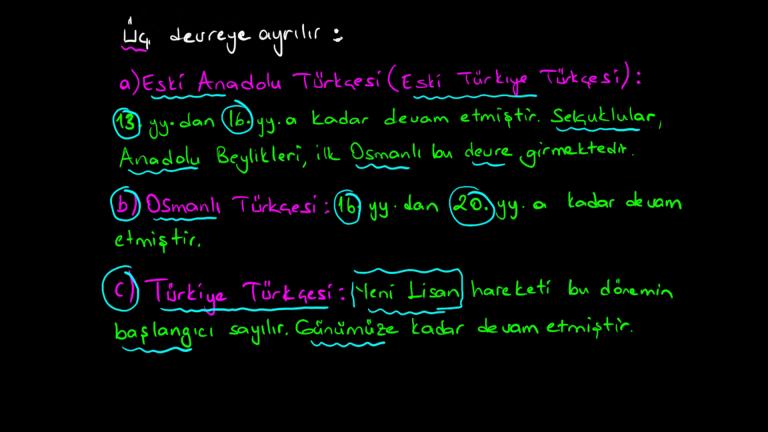 Üç devreye ayrılır :
a) Eski Anadolu Türkçesi (Eski Türkiye Türkçesi) :
13. yy.dan 16. yy.a kadar devam etmiştir. Selçuklular,
Anadolu Beylikleri, ilk Osmanlı bu devre girmektedir.
b) Osmanlı Türkçesi : 16. yy.dan 20. yy.a kadar devam
etmiştir.
c) Türkiye Türkçesi : Yeni Lisan hareketi bu dönemin
başlangıcı sayılır. Günümüze kadar devam etmiştir.